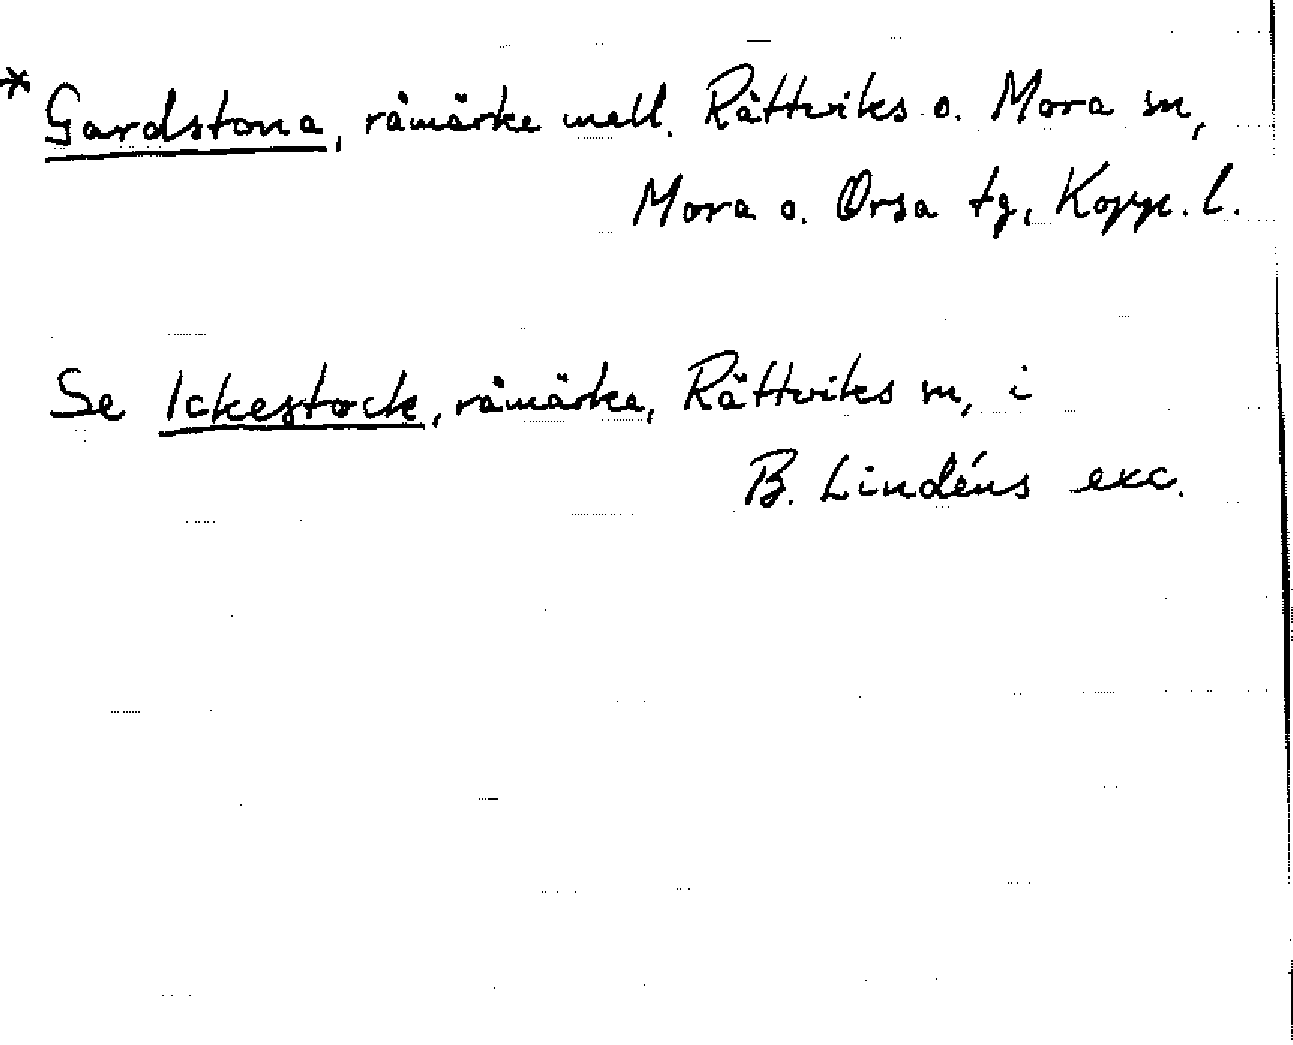 * Gardstona, råmärke mell. Rättviks o. Mora sn,
Mora o. Orsa tg, Kopp. l.
Se Ickestock, råmärke, Rättviks sn, i
B. Lindéns exc.